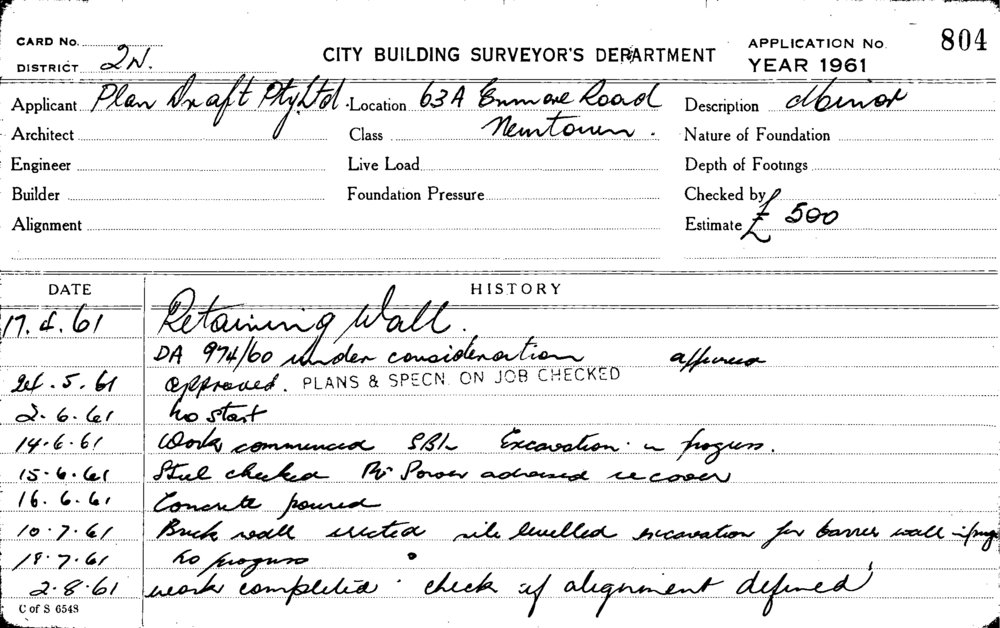 CARD No. CITY BUILDING SURVEYOR'S DEPARTMENT APPLICATION No. 804
DISTRICT 2N. YEAR 1961
Applicant Plan Draft Pty Ltd. Location 63A Enmore Road Description Minor
Architect Class Newtown. Nature of Foundation
Engineer Live Load Depth of Footings
Builder Foundation Pressure Checked by
Alignment Estimate £ 500
DATE HISTORY
17.4.61 Retaining Wall.
DA 974/60 under consideration approved
24.5.61 approved. PLANS & SPECN. ON JOB CHECKED
2.6.61 No start
14.6.61 Work commenced SBL Excavation in progress.
15.6.61 Steel checked Mr Power advised re cover
16.6.61 Concrete poured
10.7.61 Brick wall erected site levelled excavation for barrier wall in prog
18.7.61 No progress
2.8.61 work completed check if alignment defined
C of S 6548